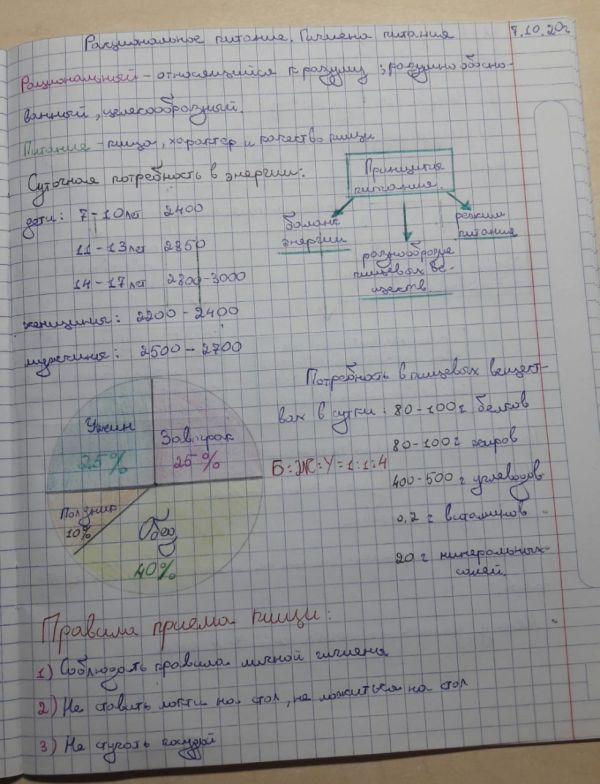 Рациональное питание. Гигиена питания
7.10.20г
Рациональный - относящийся к разуму ; разумно обосно-
ванный, целесообразный.
Питание - пища, характер и качество пищи
Суточная потребность в энергии:
Принципы
питания.
дети: 7-10 лет 2400
11-13 лет 2850
14-17 лет 2800-3000
женщины: 2200-2400
мужчины: 2500-2700
баланс
энергии
разнообразие
пищевых ве-
ществ
режим
питания
Потребность в пищевых вещест-
вах в сутки: 80-100 г белков
80-100 г жиров
400-500 г углеводов
0,2 г витаминов
20 г минеральных
солей
Б:Ж:У=1:1:4
Ужин
25%
Завтрак
25%
Полдник
10%
Обед
40%
Правила приема пищи:
1) Соблюдать правила личной гигиены
2) Не ставить локти на стол, не ложиться на стол
3) Не стучать посудой